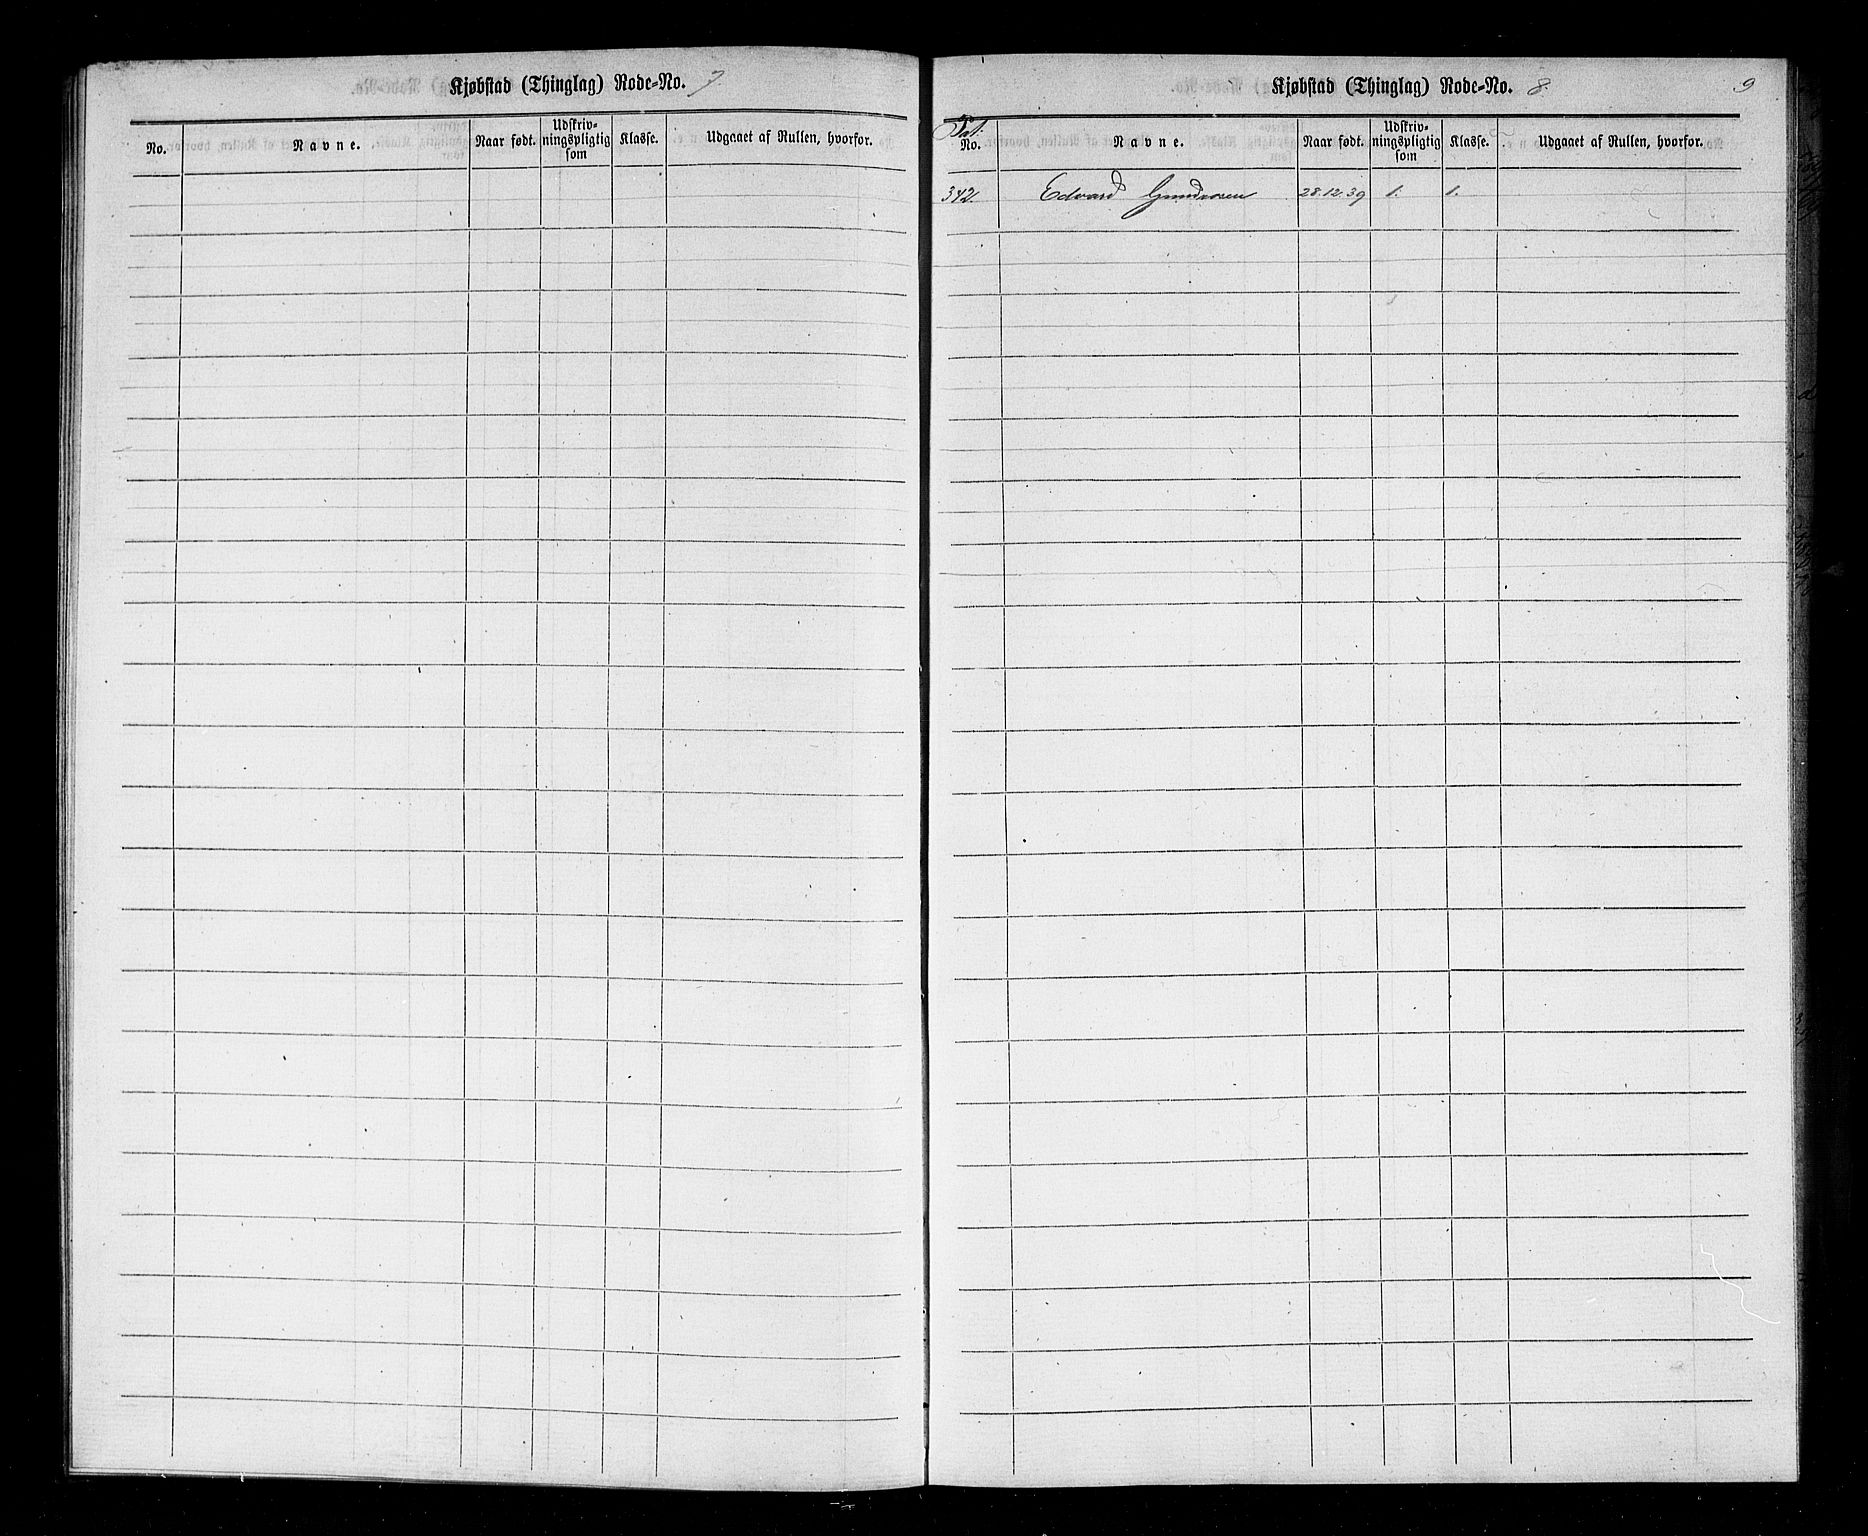 Kjøbstad (Thinglag) Rode-No. 7.
No. Navne. Naar født. Udskriv-ningspligtig som Klasse. Udgaaet af Rullen, hvorfor.
Kjøbstad (Thinglag) Rode-No. 8. 9
Pat. No. Navne. Naar født. Udskriv-ningspligtig som Klasse. Udgaaet af Rullen, hvorfor.
342. Edvard Gundrosen 28.12.39 1. 1.